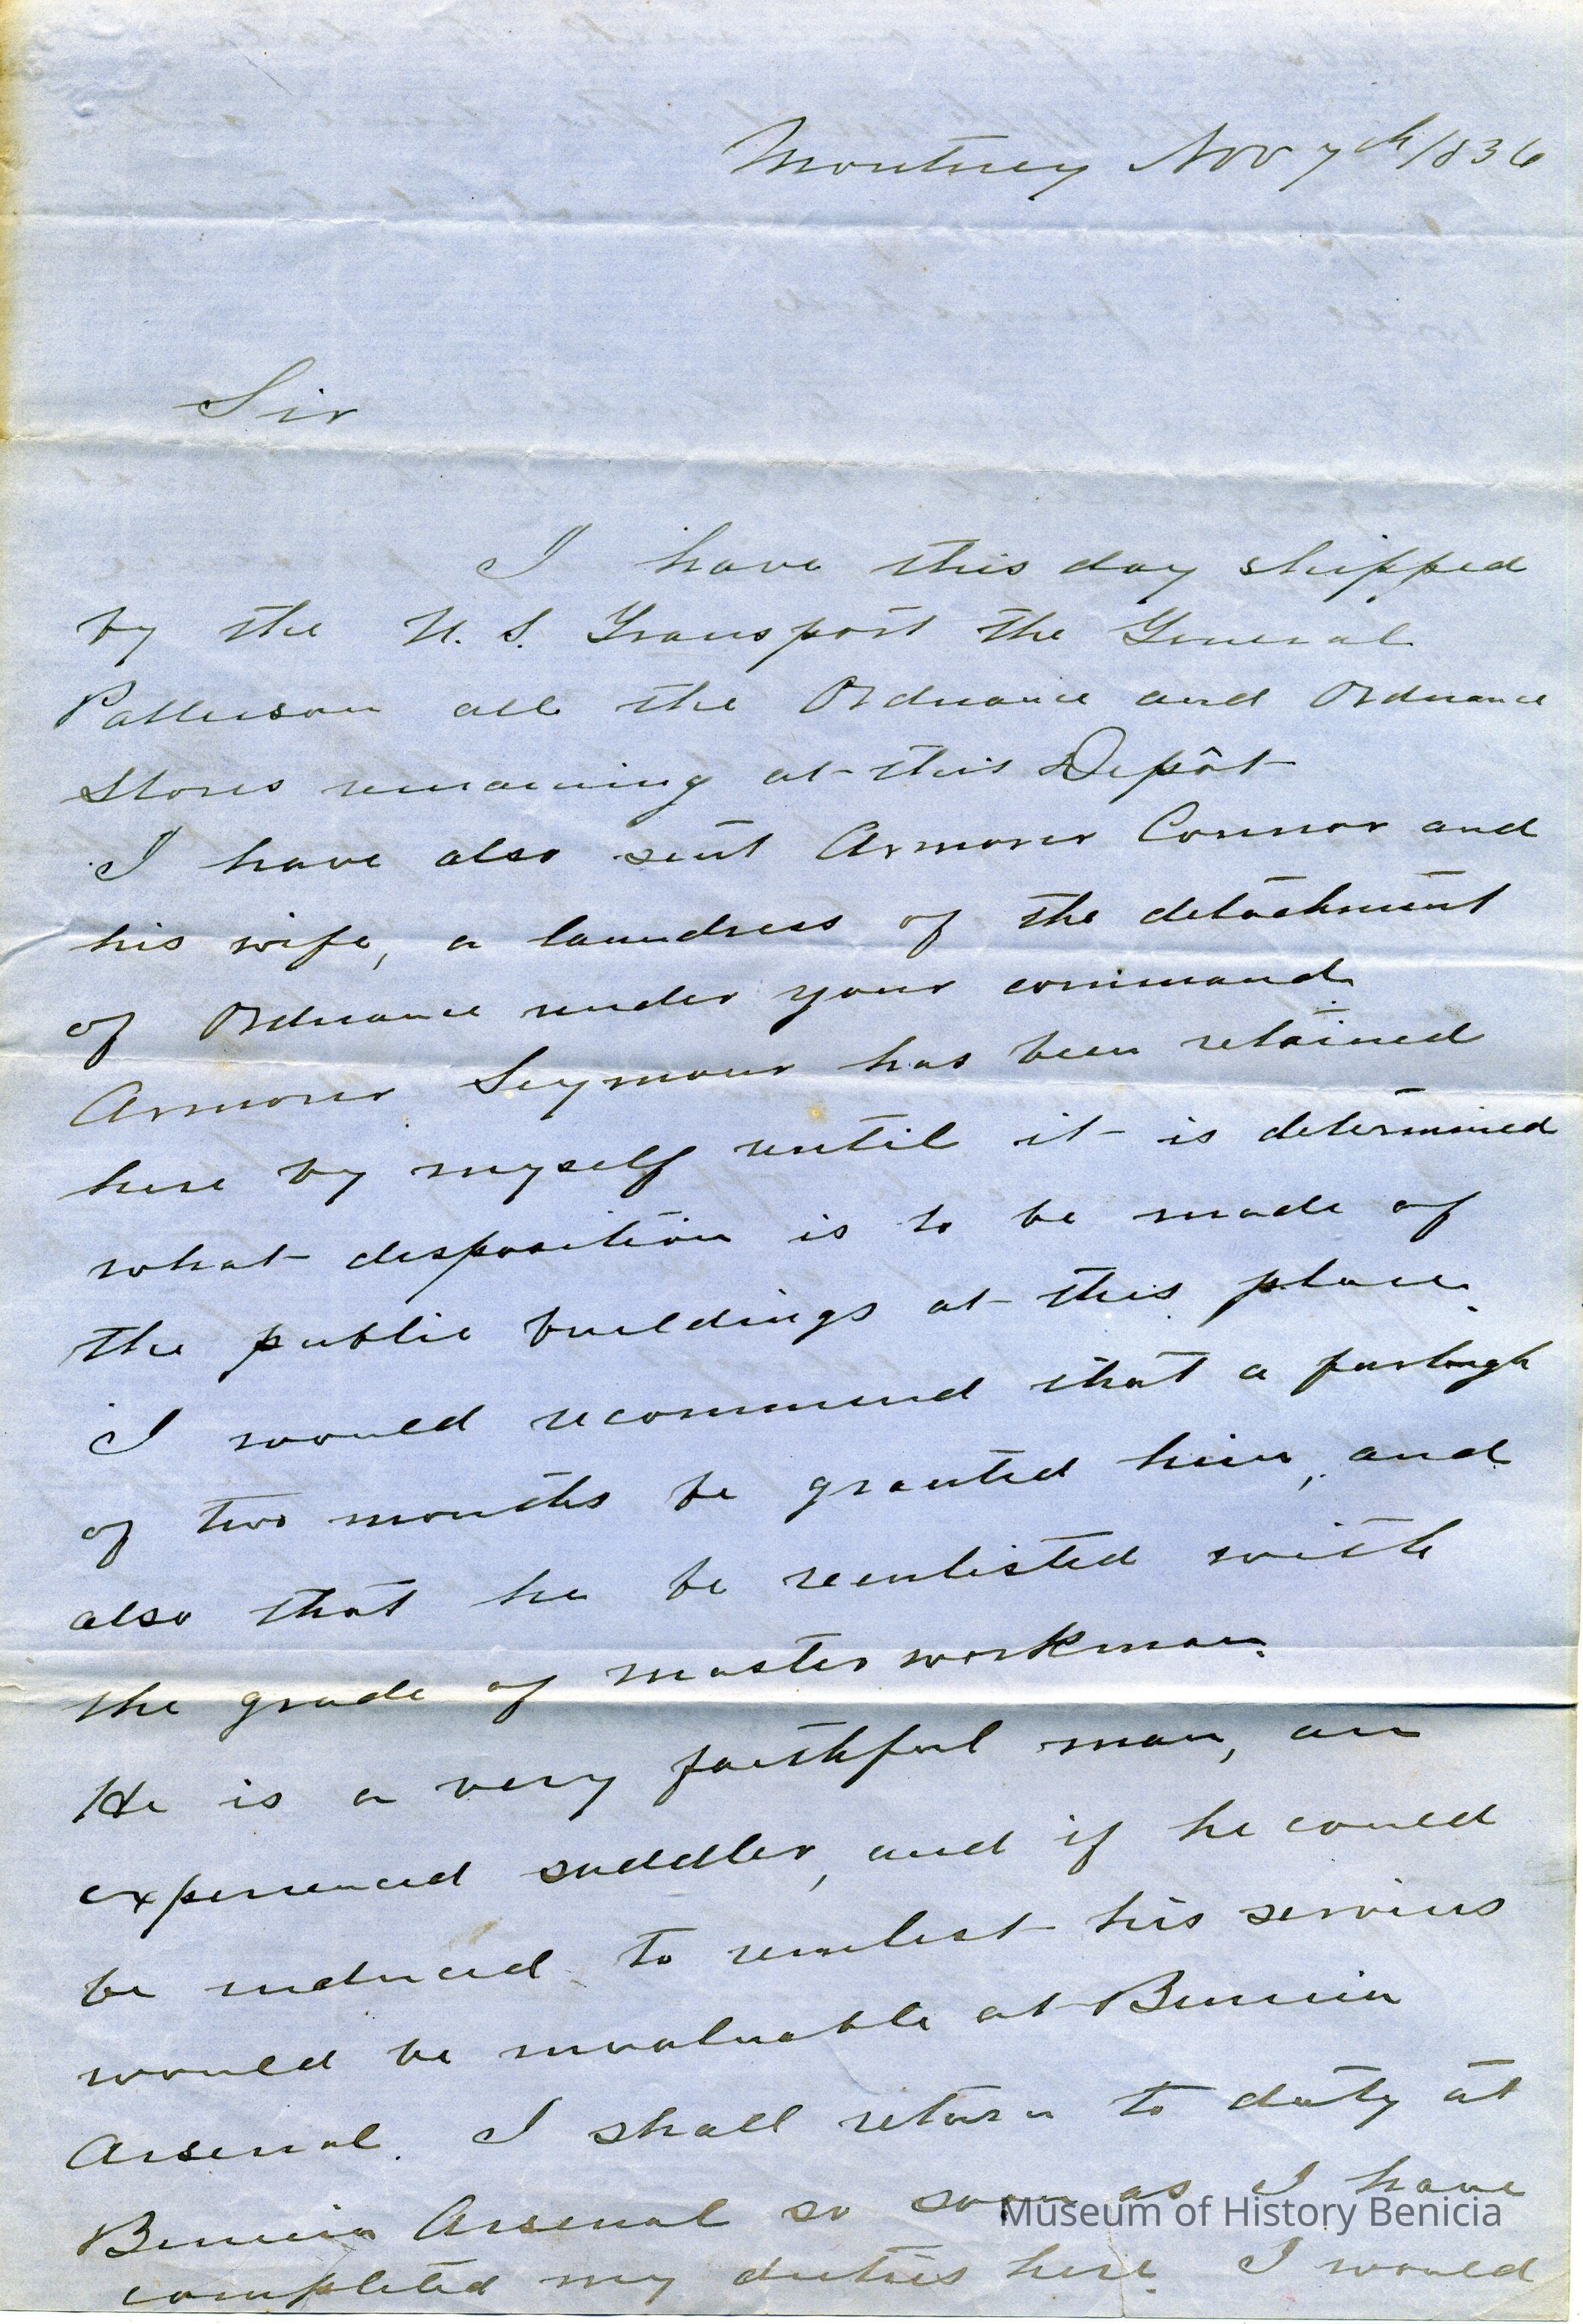 Monterey Nov 7th/1836
Sir
I have this day shipped
by the U. S. Transport the General
Patterson all the Ordnance and Ordnance
Stores remaining at this Depôt
I have also sent Armorer Connor and
his wife, a laundress of the detachment
of Ordnance under your command.
Armorer Seymour has been retained
here by myself until it is determined
what disposition is to be made of
the public buildings at this place.
I would recommend that a furlough
of two months be granted him, and
also that he be reenlisted with
the grade of master workman.
He is a very faithful man, an
experienced saddler, and if he could
be induced to reenlist his services
would be invaluable at Benicia
Arsenal. I shall return to duty at
Benicia Arsenal so soon as I have
completed my duties here. I would
Museum of History Benicia